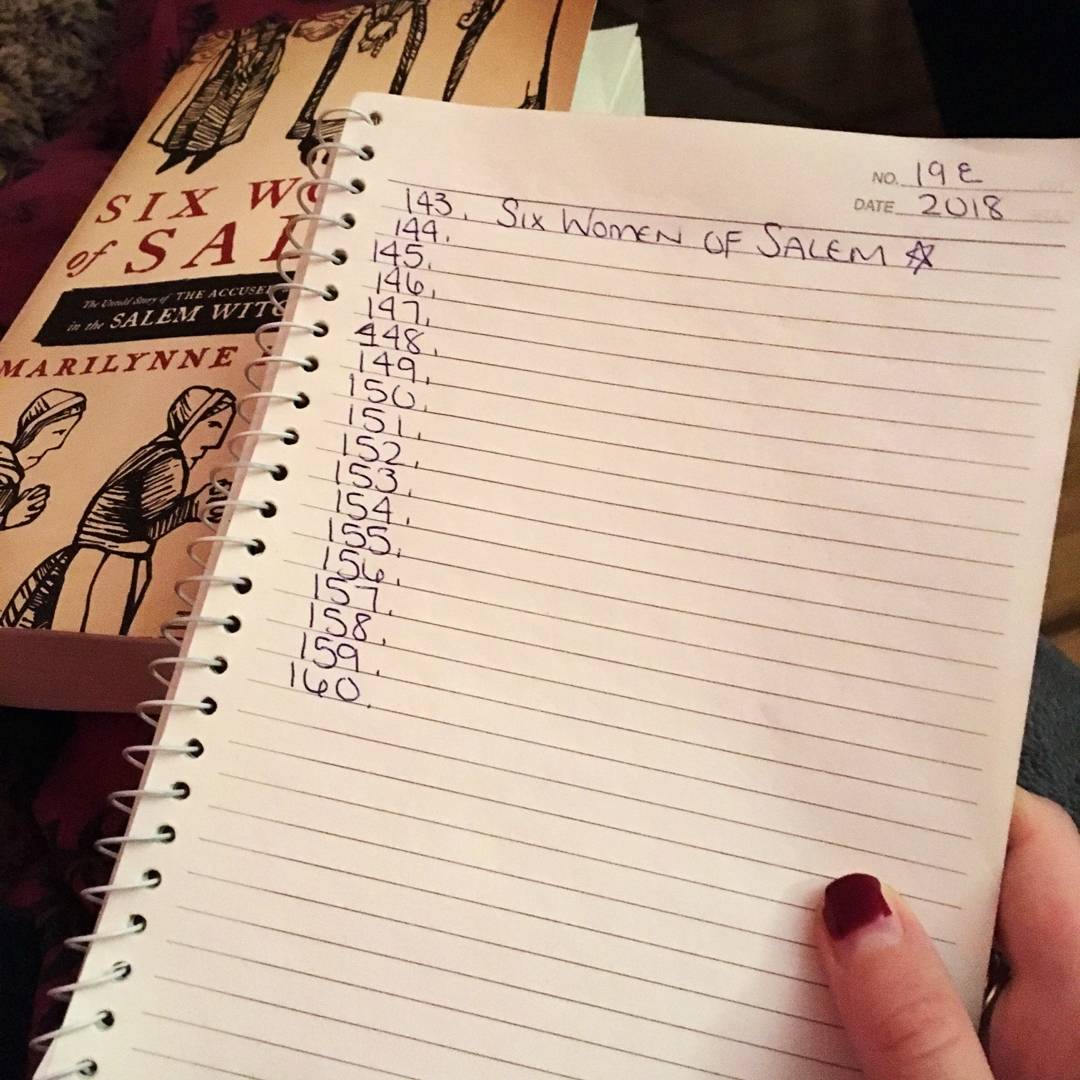 SIX WO
of SAL
The Untold Story of THE ACCUSE
in the SALEM WITC
MARILYNNE
NO. 19 E
DATE 2018
143. SIX WOMEN OF SALEM ☆
144.
145.
146.
147.
148.
149.
150.
151.
152.
153.
154.
155.
156.
157.
158.
159.
160.